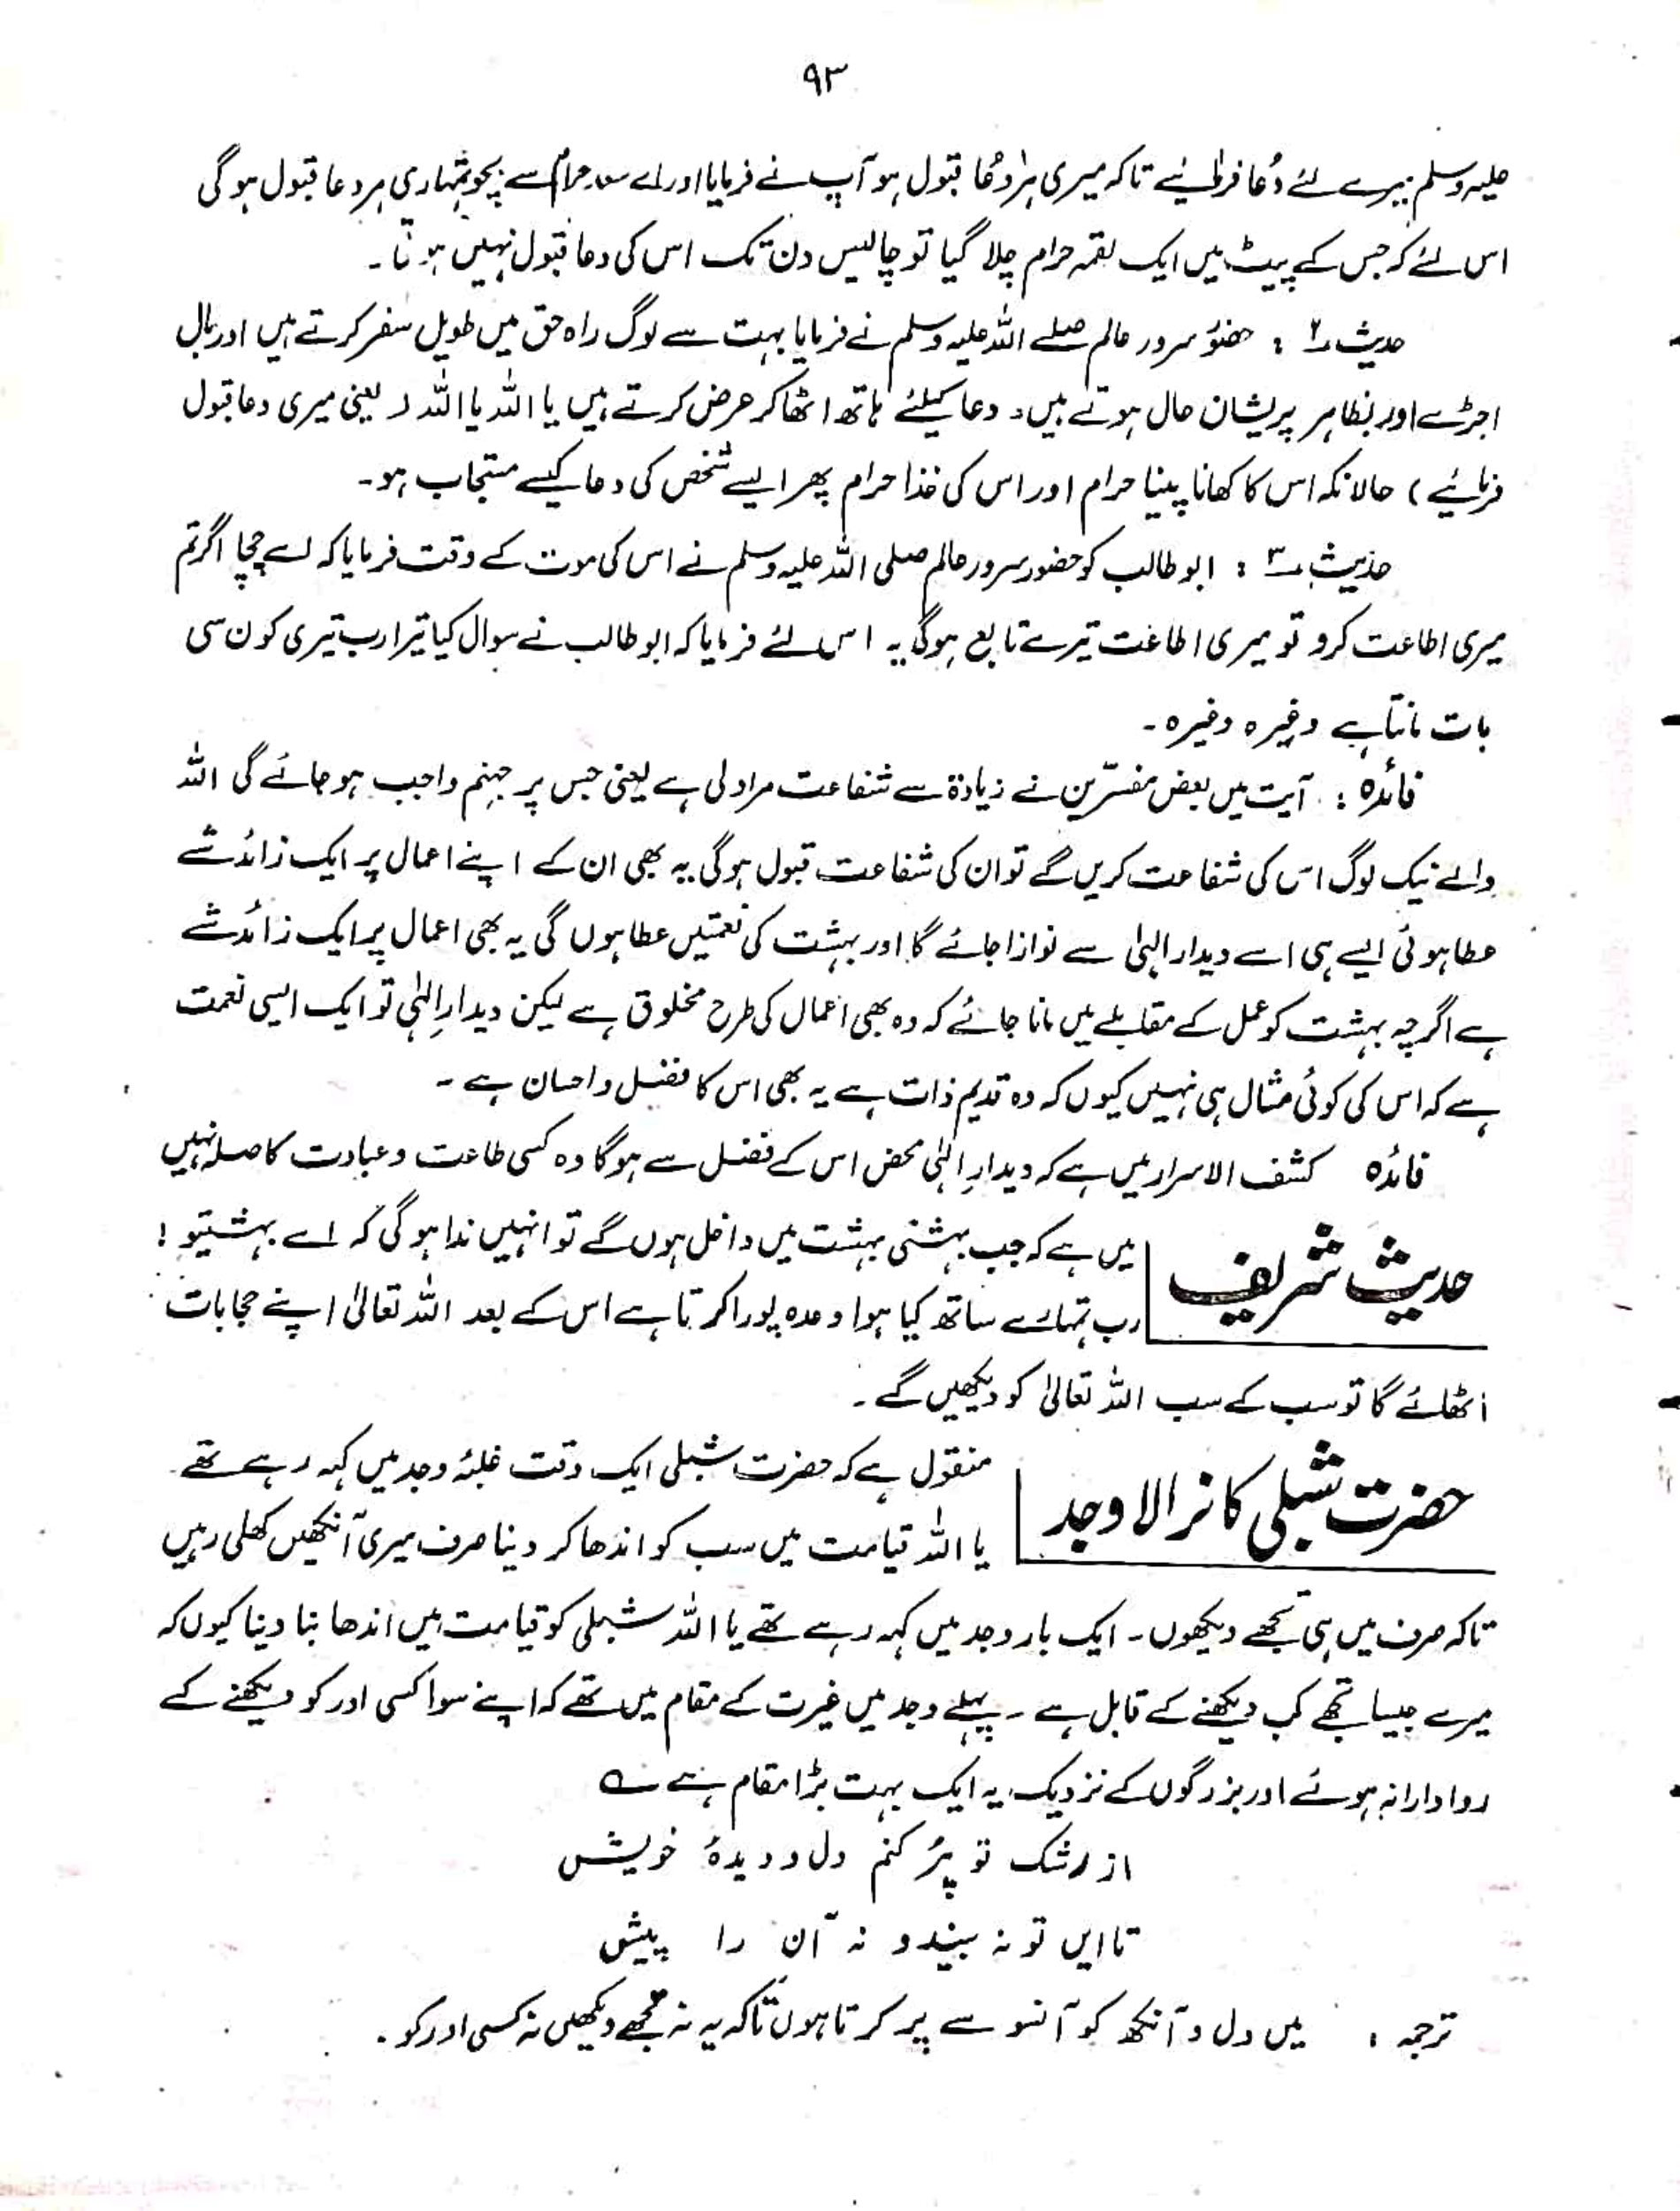 ۹۳
علیہ وسلم میرے لئے دُعا فرمائیے تاکہ میری ہر دُعا قبول ہو آپ نے فرمایا اور اے سعد حرام سے بچو تمہاری ہر دعا قبول ہو گی
اس لئے کہ جس کے پیٹ میں ایک لقمہ حرام چلا گیا تو چالیس دن تک اس کی دعا قبول نہیں ہوتی۔
حدیث ۲ : حضور سرور عالم صلے اللہ علیہ وسلم نے فرمایا بہت سے لوگ راہ حق میں طویل سفر کرتے ہیں اور بال
اجڑے اور بظاہر پریشان حال ہوتے ہیں۔ دعا کیلئے ہاتھ اٹھا کر عرض کرتے ہیں یا اللہ یا اللہ ( یعنی میری دعا قبول
فرمائیے ) حالانکہ اس کا کھانا پینا حرام اور اس کی غذا حرام پھر ایسے شخص کی دعا کیسے مستجاب ہو۔
حدیث ۳ : ابو طالب کو حضور سرور عالم صلی اللہ علیہ وسلم نے اس کی موت کے وقت فرمایا کہ اے چچا اگر تم
میری اطاعت کرو تو میری اطاعت تیرے تابع ہوگی یہ اس لئے فرمایا کہ ابو طالب نے سوال کیا تیرا رب تیری کون سی
بات مانتا ہے وغیرہ وغیرہ۔
فائدہ : آیت میں بعض مفسّرین نے زیادۃ سے شفاعت مراد لی ہے یعنی جس پر جہنم واجب ہو جائے گی اللہ
والے نیک لوگ اس کی شفاعت کریں گے تو ان کی شفاعت قبول ہوگی یہ بھی ان کے اپنے اعمال پر ایک زائد شے
عطا ہوئی ایسے ہی اسے دیدار الٰہی سے نوازا جائے گا اور بہشت کی نعمتیں عطا ہوں گی یہ بھی اعمال پر ایک زائد شے
ہے اگرچہ بہشت کو عمل کے مقابلے میں مانا جائے کہ وہ بھی اعمال کی طرح مخلوق ہے لیکن دیدارِ الٰہی تو ایک ایسی نعمت
ہے کہ اس کی کوئی مثال ہی نہیں کیوں کہ وہ قدیم ذات ہے یہ بھی اس کا فضل و احسان ہے ۔
فائدہ کشف الاسرار میں ہے کہ دیدارِ الٰہی محض اس کے فضل سے ہوگا وہ کسی طاعت و عبادت کا صلہ نہیں
حدیث شریف میں ہے کہ جب بہشتی بہشت میں داخل ہوں گے تو انہیں ندا ہو گی کہ اے بہشتیو !
رب تمہارے ساتھ کیا ہوا وعدہ پورا کرتا ہے اس کے بعد اللہ تعالیٰ اپنے حجابات
اٹھائے گا تو سب کے سب اللہ تعالیٰ کو دیکھیں گے ۔
حضرت شبلی کا نرالا وجد منقول ہے کہ حضرت شبلی ایک وقت غلبۂ وجد میں کہہ رہے تھے
یا اللہ قیامت میں سب کو اندھا کر دینا صرف میری آنکھیں کھلی رہیں
تاکہ صرف میں ہی تجھے دیکھوں۔ ایک بار وجد میں کہہ رہے تھے یا اللہ شبلی کو قیامت میں اندھا بنا دینا کیوں کہ
میرے جیسا تجھے کب دیکھنے کے قابل ہے ۔ پہلے وجد میں غیرت کے مقام میں تھے کہ اپنے سوا کسی اور کو دیکھنے کے
روادار نہ ہوئے اور بزرگوں کے نزدیک یہ ایک بہت بڑا مقام ہے ؎
از رشک تو پُر کنم دل و دیدۂ خویش
تا ایں تو نہ بیند و نہ آن را پیش
ترجمہ : میں دل و آنکھ کو آنسو سے پر کرتا ہوں تاکہ یہ نہ تجھے دیکھیں نہ کسی اور کو ۔